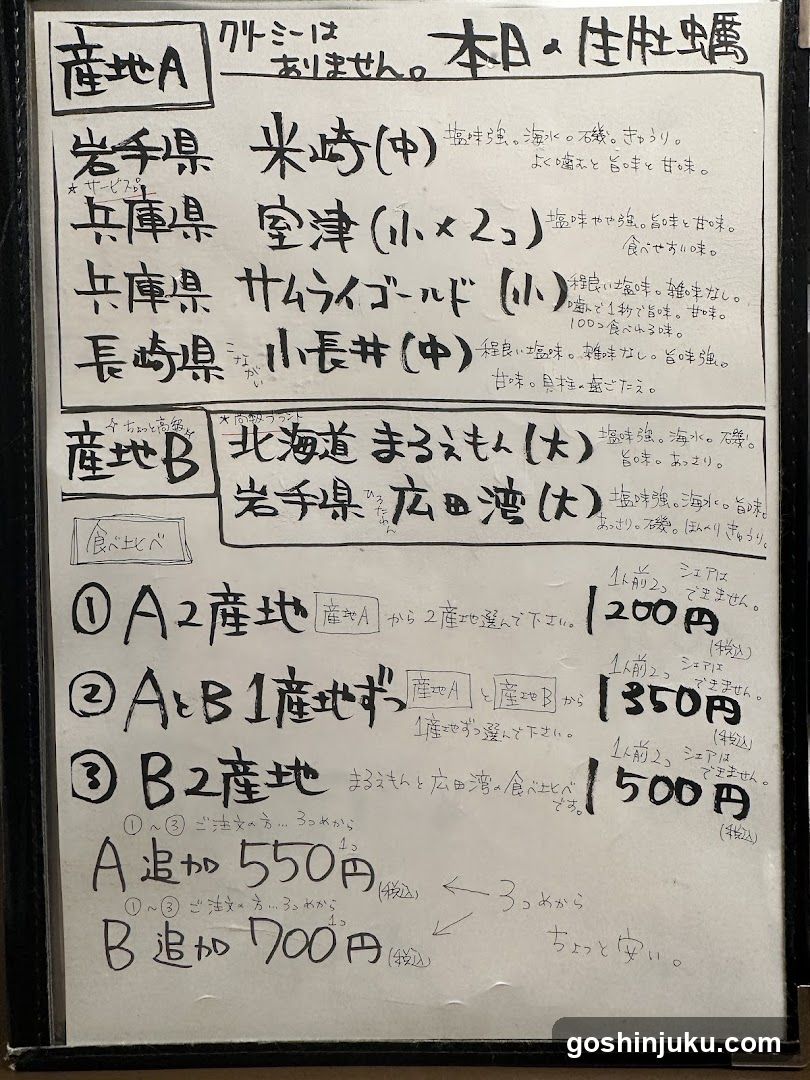 産地A
クリーミーは
ありません。
本日の生牡蠣
岩手県 米崎(中) 塩味強。海水。磯。きゅうり。
よく噛むと旨味と甘味。
★サービス品
兵庫県 室津(小×2コ) 塩味やや強。旨味と甘味。
食べやすい味。
兵庫県 サムライゴールド(小) 程良い塩味。雑味なし。
噛んで1秒で旨味。甘味。
100コ食べれる味。
長崎県 こながい 小長井(中) 程良い塩味。雑味なし。旨味強。
甘味。貝柱の歯ごたえ。
ちょっと高級
産地B
★高級ブランド
北海道 まるえもん(大) 塩味強。海水。磯。
旨味。あっさり。
岩手県 ひろたわん 広田湾(大) 塩味強。海水。旨味。
あっさり。磯。ほんのりきゅうり。
食べ比べ
① A2産地 産地A から2産地選んで下さい。 1人前2コ シェアはできません。 1200円(税込)
② AとB1産地ずつ 産地A と 産地B から 1人前2コ シェアはできません。 1350円(税込)
1産地ずつ選んで下さい。
③ B2産地 まるえもんと広田湾の食べ比べです。 1人前2コ シェアはできません。 1500円(税込)
①〜③ご注文の方…3つめから
A 追加 1コ 550円(税込)
①〜③ご注文の方…3つめから
B 追加 1コ 700円(税込)
← 3つめから
ちょっと安い。
goshinjuku.com